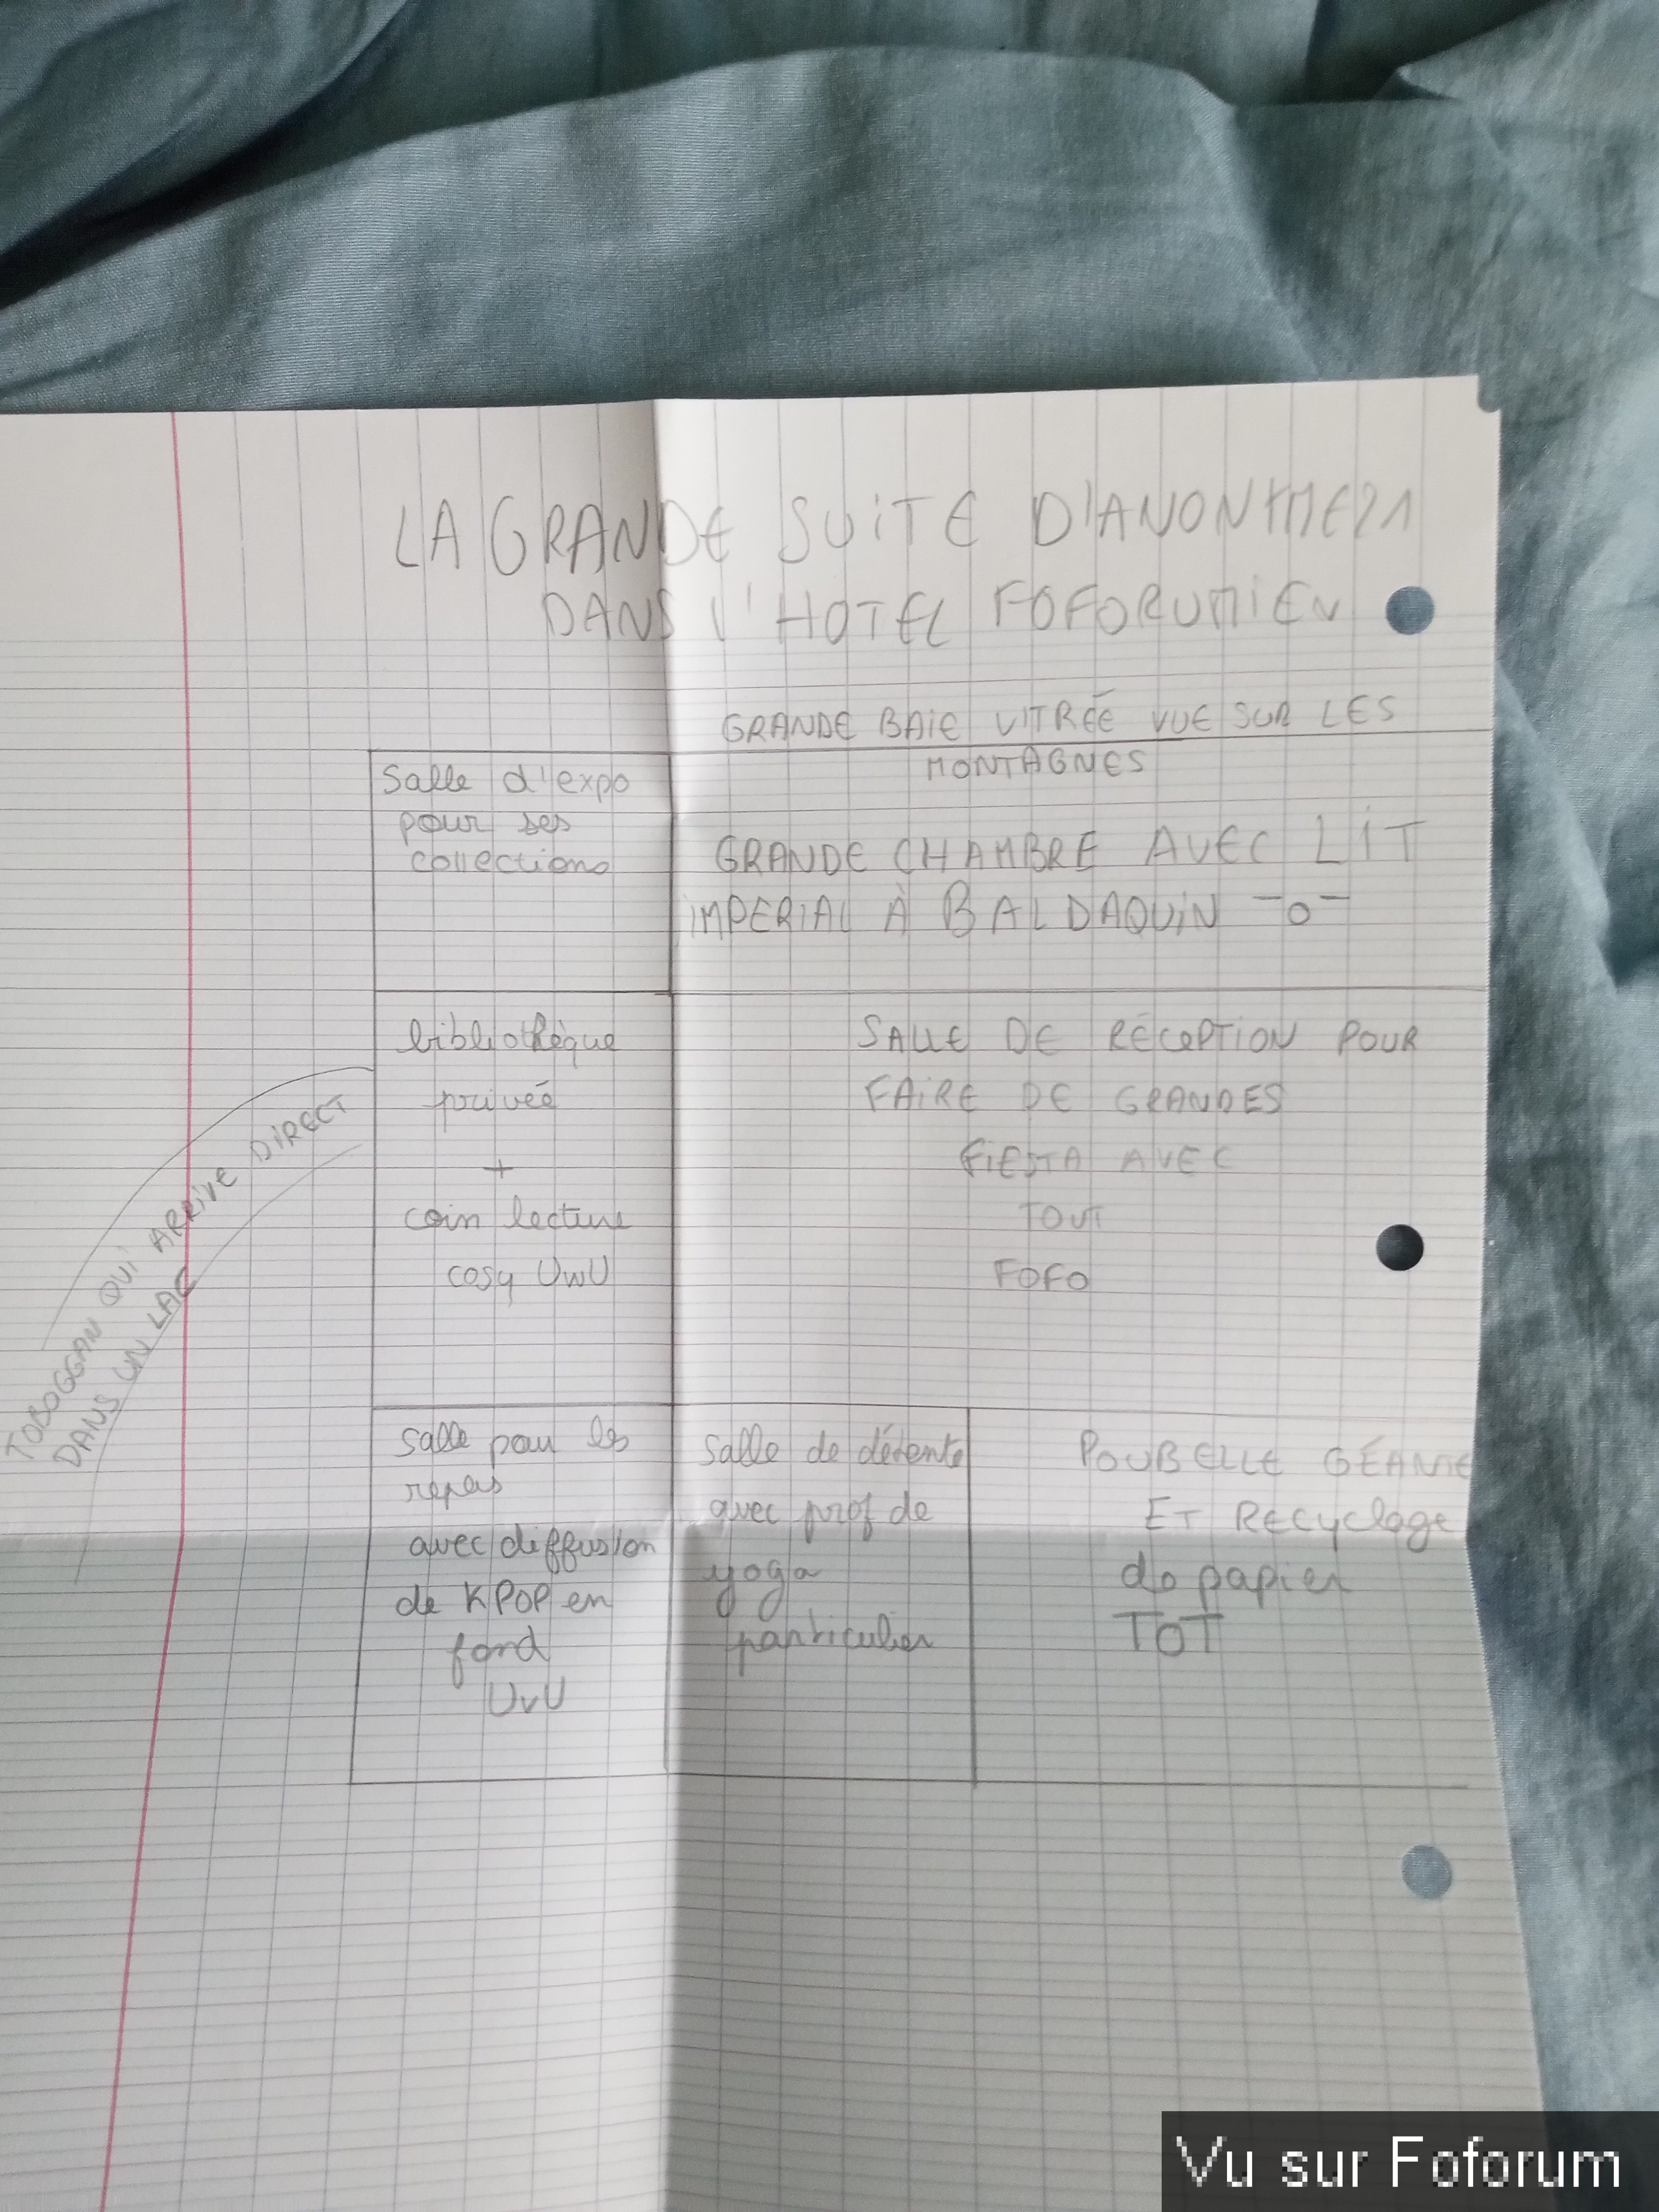 LA GRANDE SUITE D'ANONYME21
DANS l'HOTEL FOFORUMIEN
GRANDE BAIE VITRÉE VUE SUR LES
MONTAGNES
Salle d'expo
pour ses
collections
GRANDE CHAMBRE AVEC LIT
IMPERIAL À BALDAQUIN -o-
bibliothèque
privée
+
coin lecture
cosy UwU
SALLE DE RÉCEPTION POUR
FAIRE DE GRANDES
FIESTA AVEC
TOUT
FOFO
TOBOGGAN QUI ARRIVE DIRECT
DANS UN LAC
Salle pour les
repas
avec diffusion
de KPOP en
fond
UvU
Salle de détente
avec prof de
yoga
particulier
POUBELLE GÉANTE
ET RECyclage
de papier
TOT
Vu sur Foforum